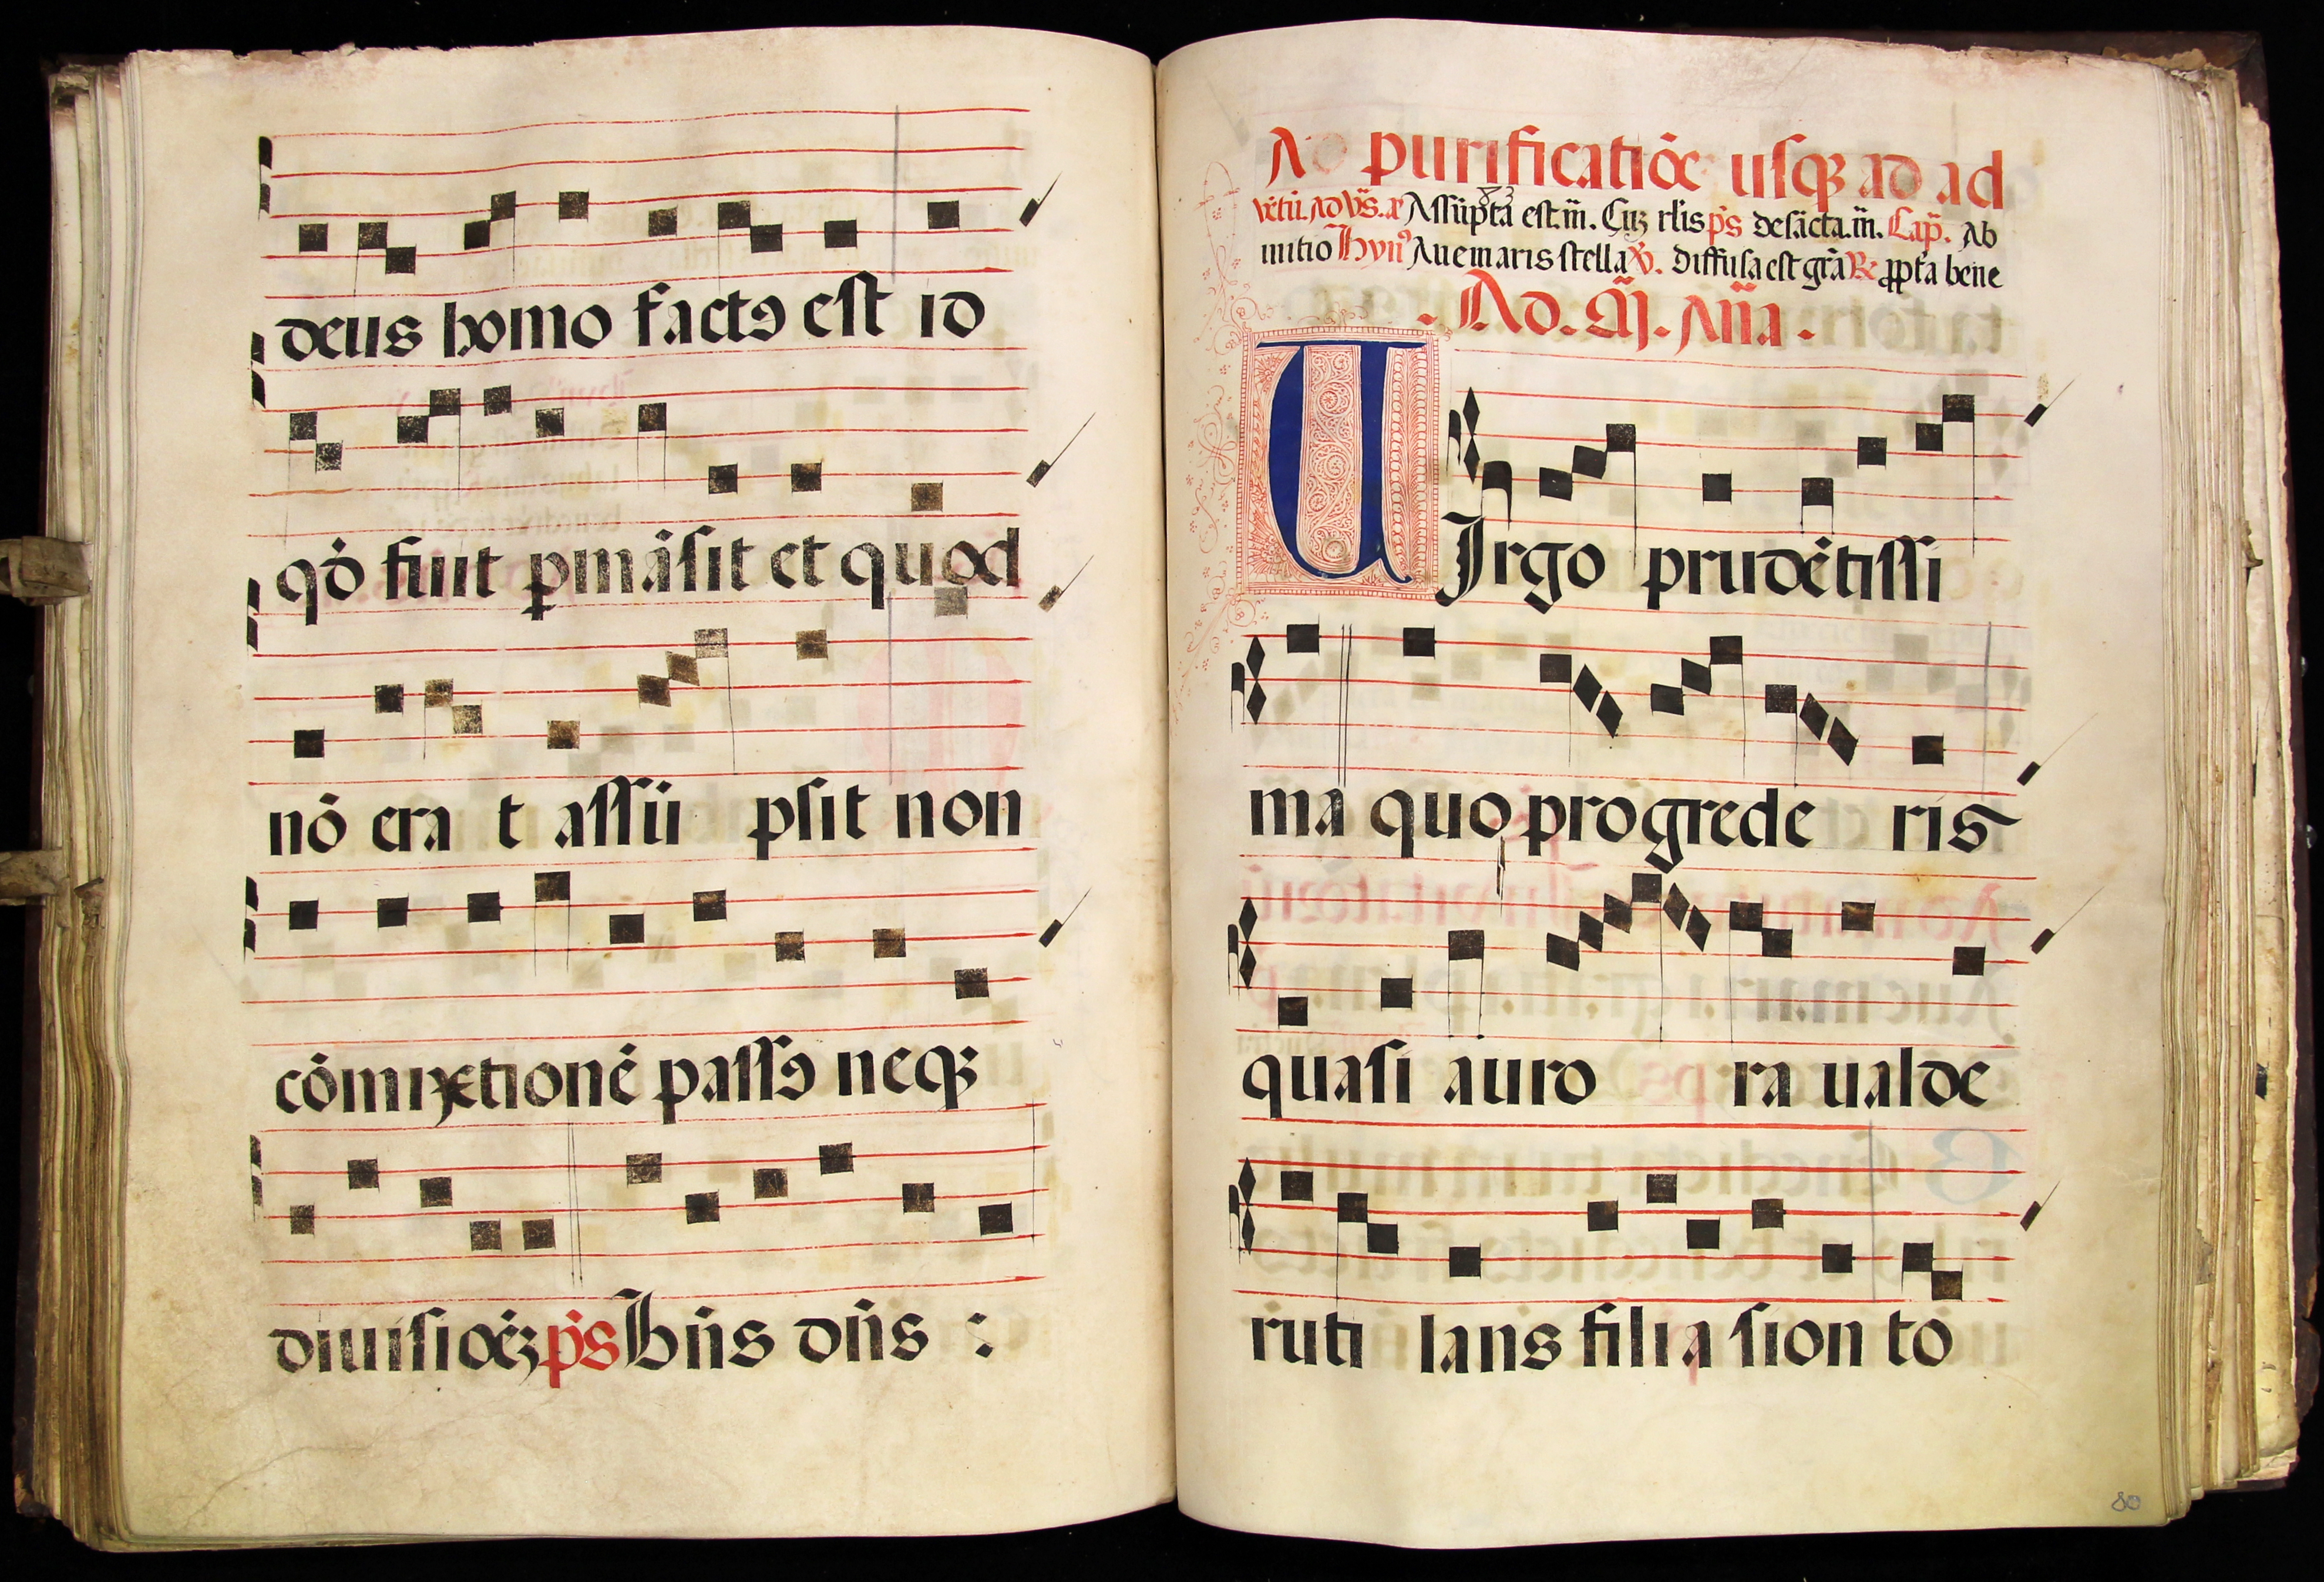 deus homo factꝯ est id
qđ fuit ꝑmāsit et quod
nō era t assū psit non
cōmixtionē passꝯ neqꝫ
diuisiōeꝫ p̄s Bn̄s dn̄s :
A purificatiōe usqꝫ ad ad
vētū. Ad Vs̄. æ Assūpta est. m̄. Cuꝫ rl̄is ps̄ de sācta. m̄. Cap̄. Ab
initio Hyn⁹ Aue maris stella ꝟ. Diffusa est gr̄a ℞ ꝓpta bene
. Ad. M̄. Añā .
UIrgo prudētissi
ma quo progrede ris
quasi auro ra ualde
ruti lans filia sion to
80